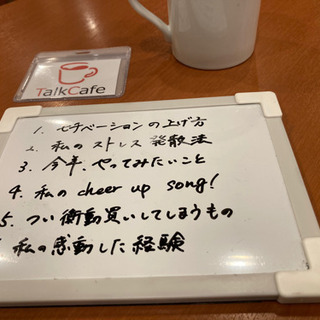 TalkCafe
1. モチベーションの上げ方
2. 私のストレス発散法
3. 今年、やってみたいこと
4. 私の cheer up song!
5. つい衝動買いしてしまうもの
私の感動した経験